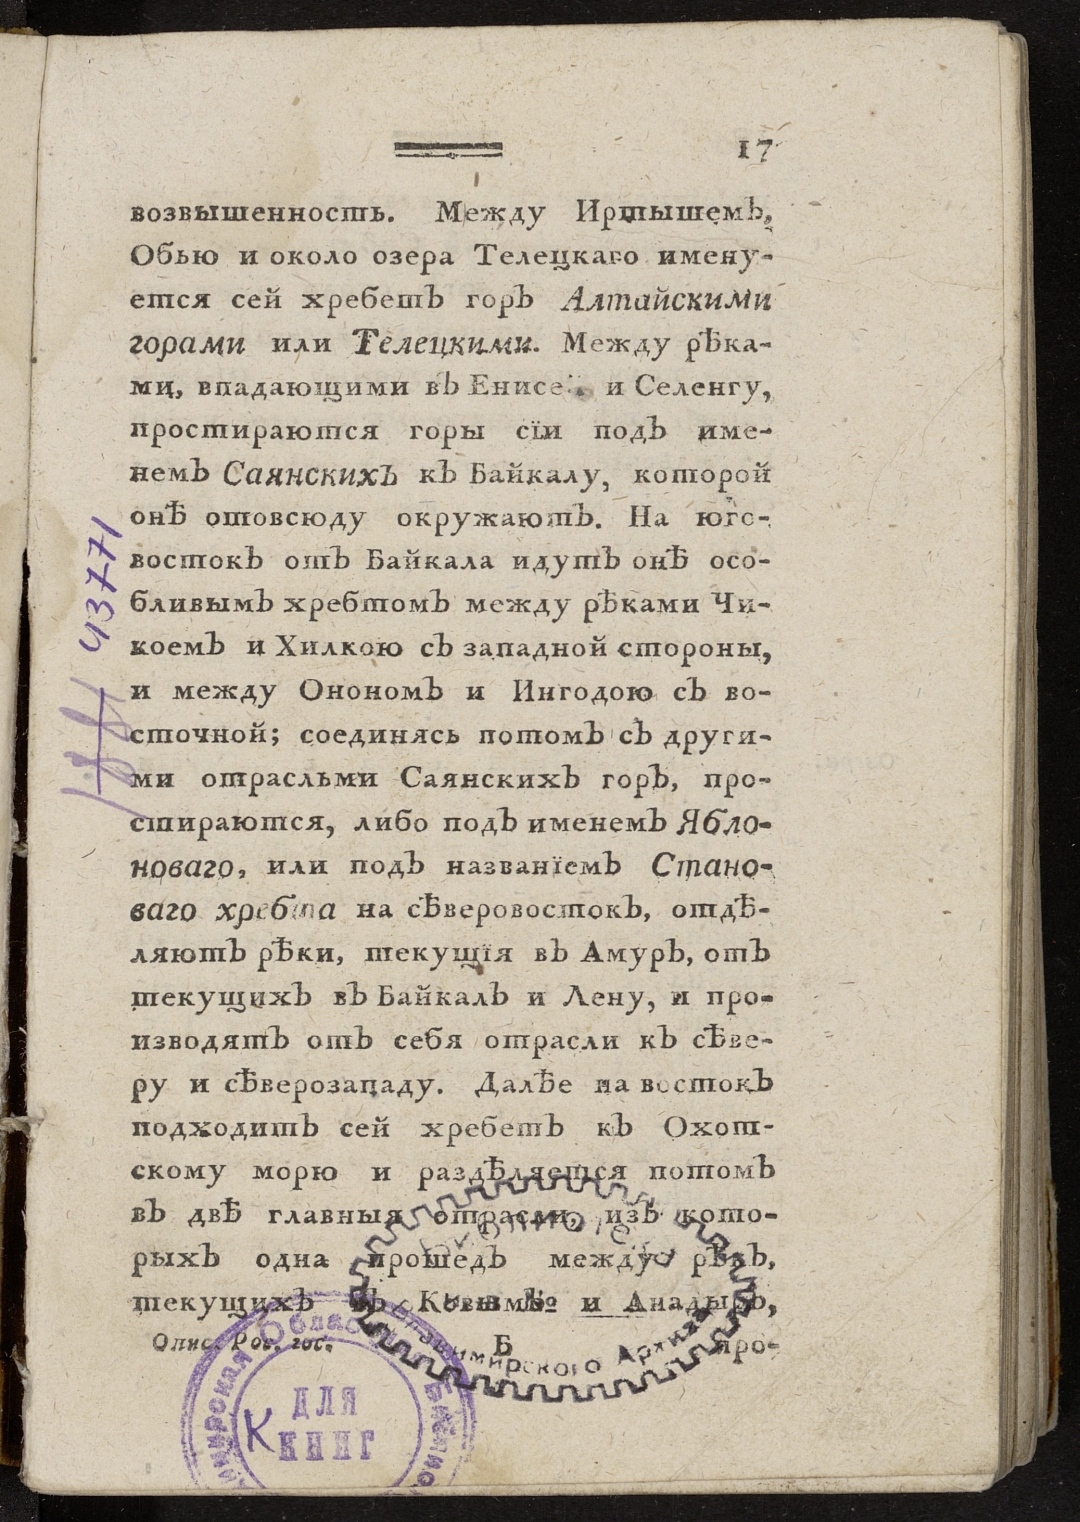 17
возвышенность. Между Иртышемъ,
Обью и около озера Телецкаго имену-
ется сей хребетъ горъ Алтайскими
горами или Телецкими. Между рѣка-
ми, впадающими въ Енисей и Селенгу,
простираются горы сїи подъ име-
немъ Саянскихъ къ Байкалу, которой
онѣ отовсюду окружаютъ. На юго-
востокъ отъ Байкала идутъ онѣ осо-
бливымъ хребтомъ между рѣками Чи-
коемъ и Хилкою съ западной стороны,
и между Онономъ и Ингодою съ во-
сточной; соединясь потомъ съ други-
ми отрасльми Саянскихъ горъ, про-
стираются, либо подъ именемъ Ябло-
новаго, или подъ названїемъ Стано-
ваго хребта на сѣверовостокъ, отдѣ-
ляютъ рѣки, текущїя въ Амуръ, отъ
текущихъ въ Байкалъ и Лену, и про-
изводятъ отъ себя отрасли къ сѣве-
ру и сѣверозападу. Далѣе на востокъ
подходитъ сей хребетъ къ Охот-
скому морю и раздѣляется потомъ
въ двѣ главныя отрасли, изъ кото-
рыхъ одна прошедъ между рѣкъ,
текущихъ въ Ковыму и Анадыръ,
Опис. Рос. гос. Б про-
43771
Владимирского Архива
Областная
ДЛЯ
КНИГ